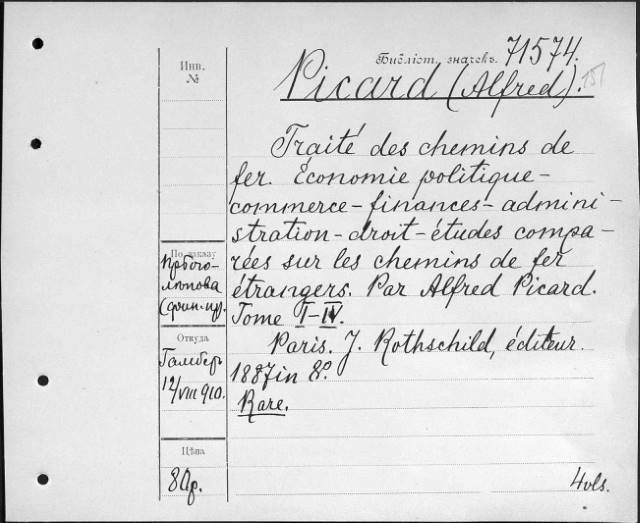 Библіот. значекъ. 71574.
Инв.
№
Picard (Alfred).
Traité des chemins de
fer. Économie politique-
commerce-finances-admini-
stration-droit-études compa-
rées sur les chemins de fer
étrangers. Par Alfred Picard.
Tome I-IV.
Paris. J. Rothschild, éditeur.
1887 in 8º.
Rare.
По заказу
Откуда
12/VIII 910.
Цѣна
80р.
4 vls.